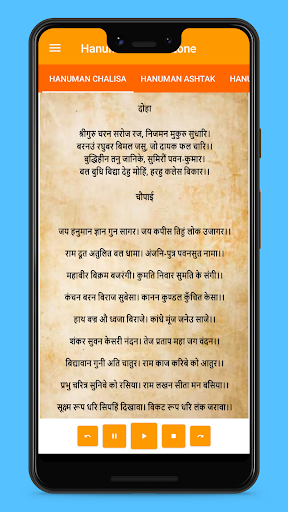 Hanuman one
HANUMAN CHALISA HANUMAN ASHTAK HANU
दोहा
श्रीगुरु चरन सरोज रज, निजमन मुकुरु सुधारि।
बरनउं रघुबर बिमल जसु, जो दायक फल चारि।।
बुद्धिहीन तनु जानिके, सुमिरौं पवन-कुमार।
बल बुधि बिद्या देहु मोहिं, हरहु कलेस बिकार।।
चौपाई
जय हनुमान ज्ञान गुन सागर। जय कपीस तिहुं लोक उजागर।।
राम दूत अतुलित बल धामा। अंजनि-पुत्र पवनसुत नामा।।
महाबीर बिक्रम बजरंगी। कुमति निवार सुमति के संगी।।
कंचन बरन बिराज सुबेसा। कानन कुण्डल कुँचित केसा।।
हाथ बज्र औ ध्वजा बिराजे। कांधे मूंज जनेउ साजे।।
शंकर सुवन केसरी नंदन। तेज प्रताप महा जग वंदन।।
बिद्यावान गुनी अति चातुर। राम काज करिबे को आतुर।।
प्रभु चरित्र सुनिबे को रसिया। राम लखन सीता मन बसिया।।
सूक्ष्म रूप धरि सियहिं दिखावा। बिकट रूप धरि लंक जरावा।।